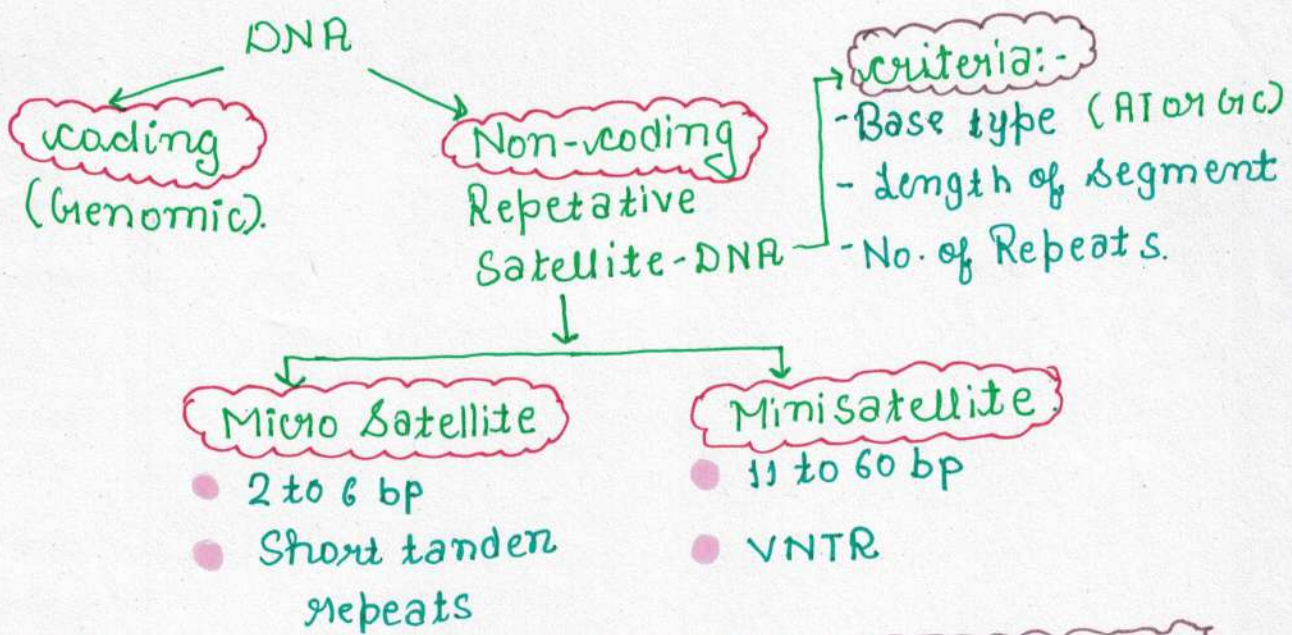 DNA
coding
(Genomic).
Non-coding
Repetative
Satellite-DNA
criteria:-
-Base type (AT or GC)
- Length of segment
-No. of Repeats.
Micro Satellite
2 to 6 bp
Short tanden
repeats
Minisatellite.
11 to 60 bp
VNTR